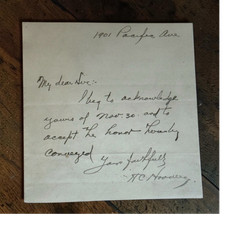 1001 Pacific Ave
My dear Sir:-
I beg to acknowledge
yours of Nov. 30. and to
accept the honor thereby
conveyed
Yours faithfully